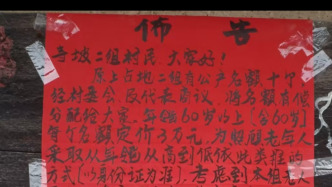 佈告
寺坡二组村民 大家好!
原上占地二组有公产名额十个
经村委会、及代表商议,将名额有偿
分配给大家,年龄60岁以上(含60岁)
每个名额定价3万元,为照顾老年人
采取从年龄从高到低依此类推的
方式(以身份证为准),考虑到本组老人